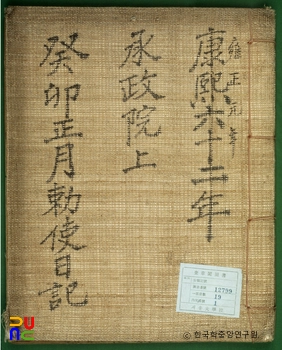 雍正元年
康熙六十二年
承政院上
癸卯正月勅使日記
12799
19
1
© 한국학중앙연구원